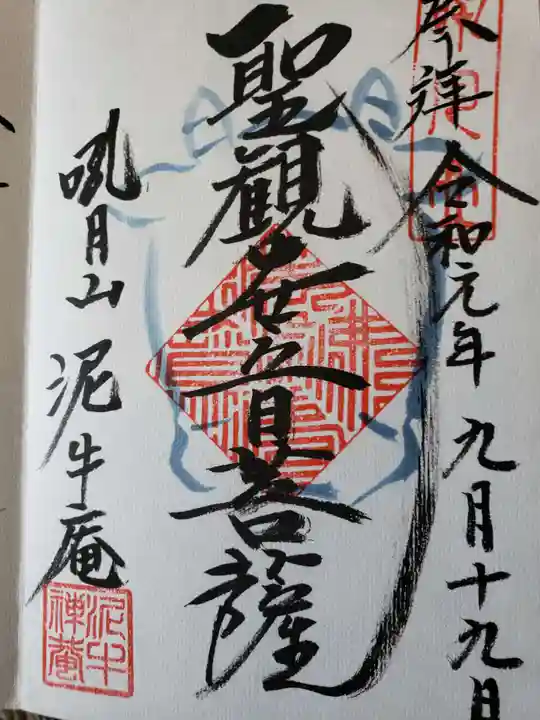 奉拝 令和元年九月十九日
聖観世音菩薩
吼月山 泥牛庵
泥牛禅菴